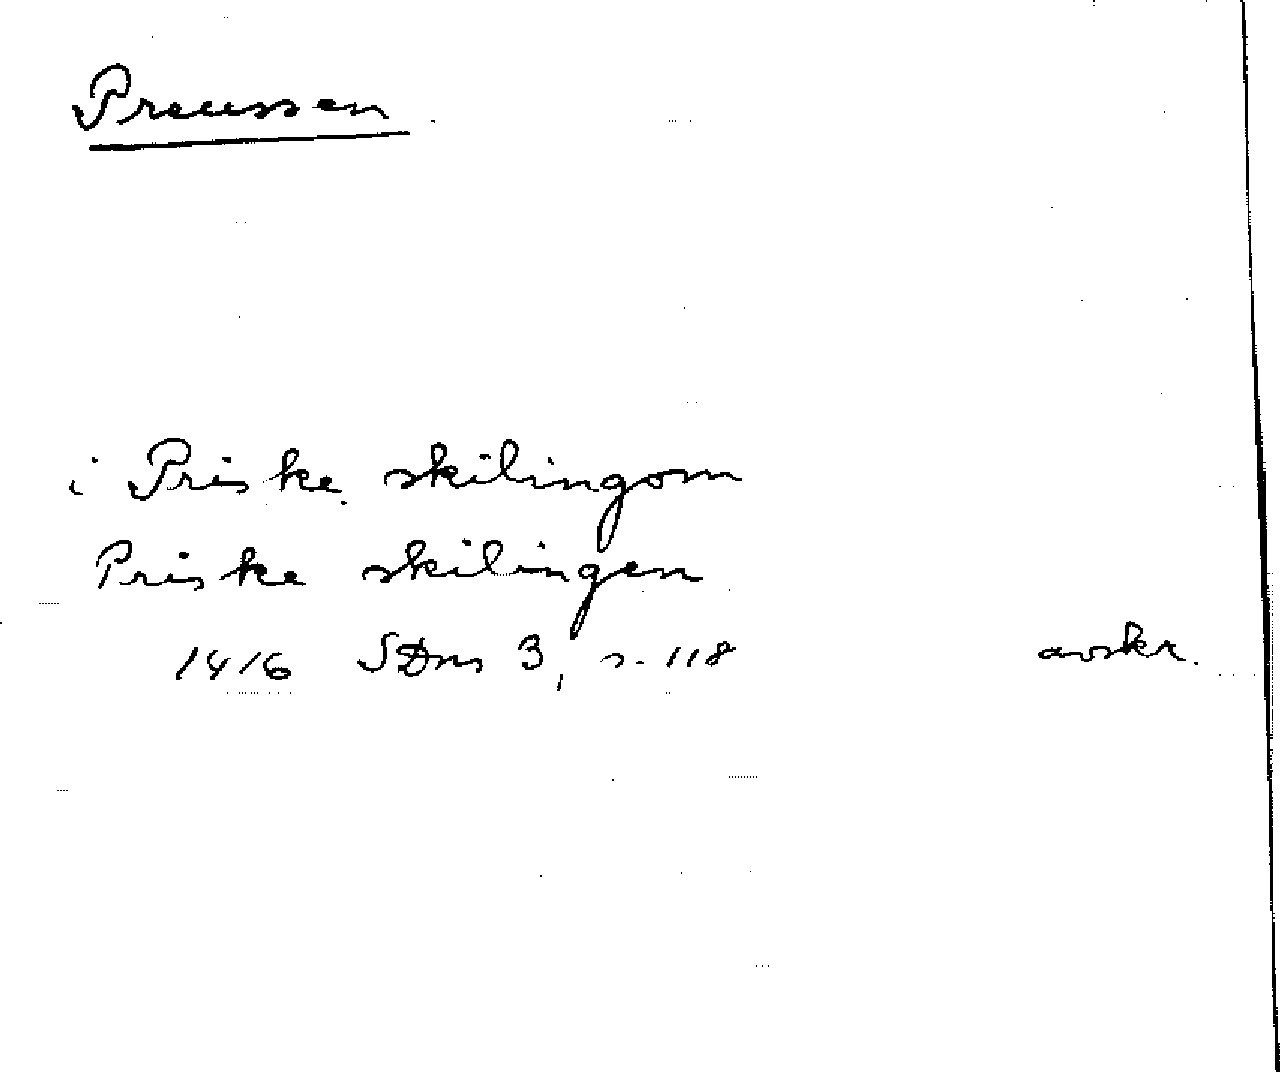 Preussen
i Priske skilingom
Priske skilingen
1416 SDns 3, s. 118 avskr.